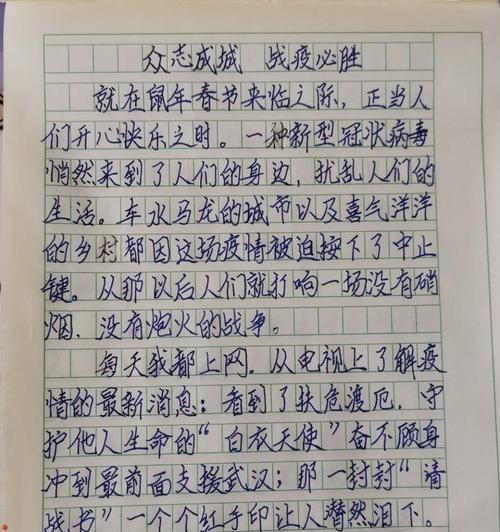 众志成城 战疫必胜
就在鼠年春节来临之际，正当人
们开心快乐之时。一种新型冠状病毒
悄然来到了人们的身边，扰乱人们的
生活。车水马龙的城市以及喜气洋洋
的乡村都因这场疫情被迫按下了中止
键。从那以后人们就打响一场没有硝
烟，没有炮火的战争。
每天我都上网。从电视上了解疫
情的最新消息：看到了扶危渡厄，守
护他人生命的“白衣天使”奋不顾身
冲到最前面支援武汉；那一封封“请
战书”一个个红手印让人潸然泪下。